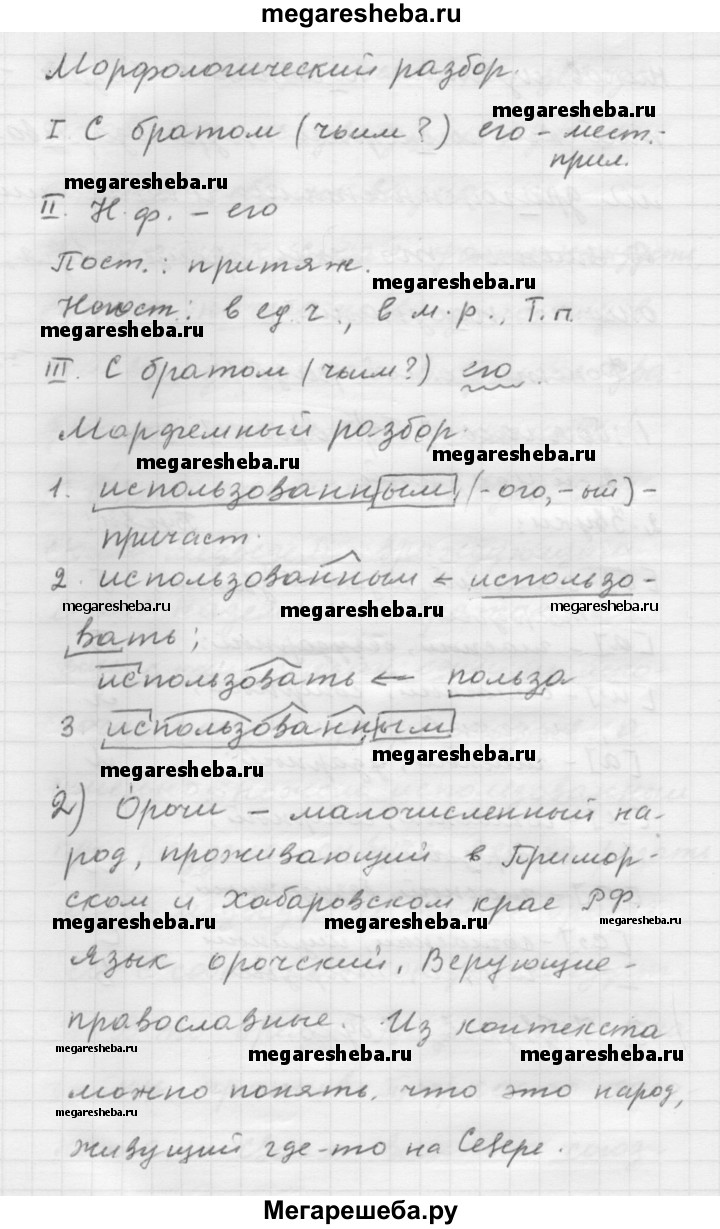 megaresheba.ru
Морфологический разбор.
megaresheba.ru
I С братом (чьим?) его - мест.-
прил.
megaresheba.ru
II. Н.ф. - его
Пост.: притяж.
megaresheba.ru
Непост.: в ед.ч., в м.р., Т.п.
megaresheba.ru
III. С братом (чьим?) его.
Морфемный разбор.
megaresheba.ru megaresheba.ru
1. использованным, (-ого, -ый) -
причаст.
2. использованным ← использо-
megaresheba.ru megaresheba.ru megaresheba.ru
вать;
использовать ← польза
3 использованным
megaresheba.ru megaresheba.ru
2) Орочи - малочисленный на-
род, проживающий в Примор-
ском и Хабаровском крае РФ.
megaresheba.ru megaresheba.ru megaresheba.ru
Язык орочский. Верующие -
православные. Из контекста
megaresheba.ru megaresheba.ru megaresheba.ru
можно понять, что это народ,
megaresheba.ru
живущий где-то на Севере.
Мегарешеба.ру